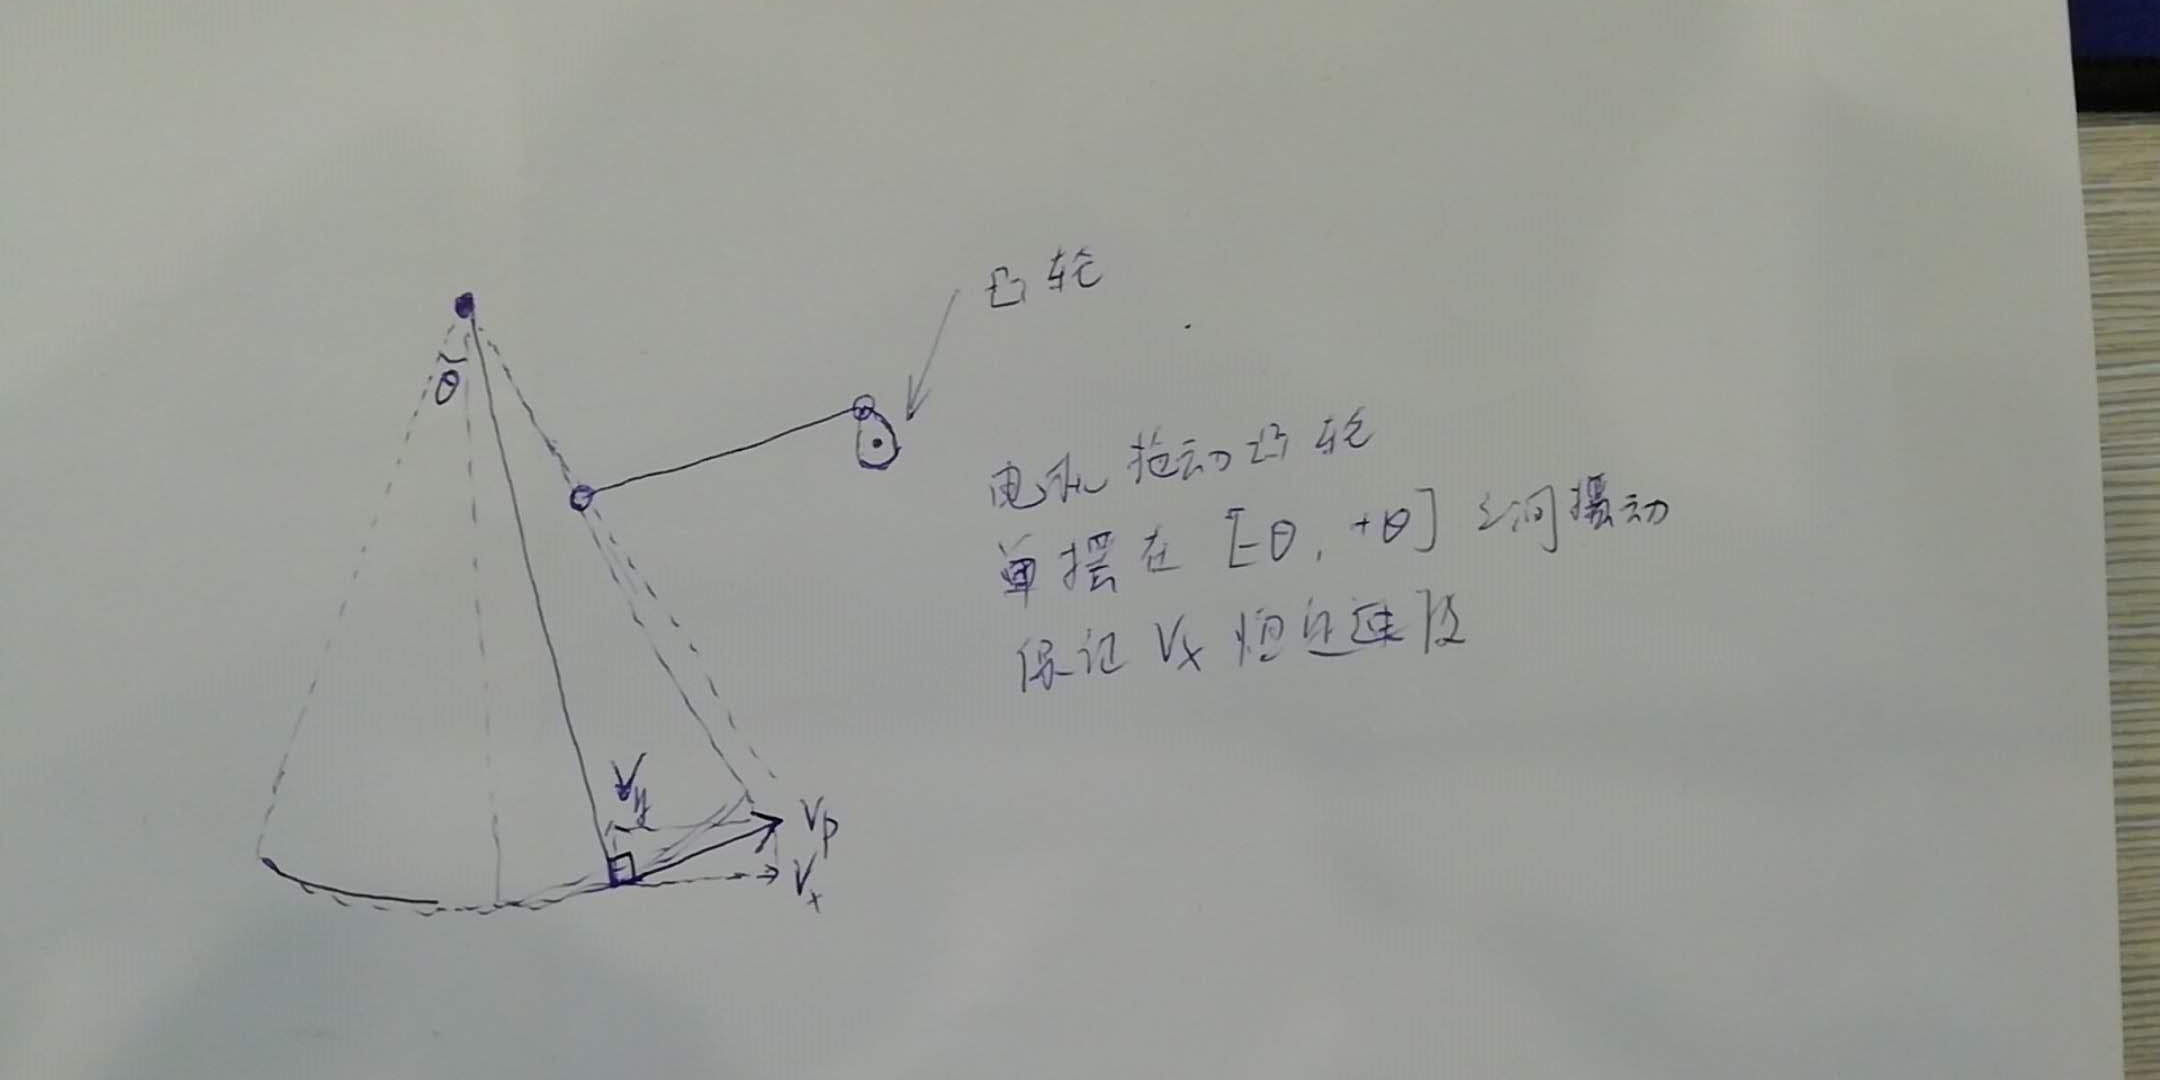 凸轮
θ
电机拖动凸轮
单摆在 [-θ, +θ] 之间摆动
保证 Vx 恒定速度
Vy
Vp
Vx